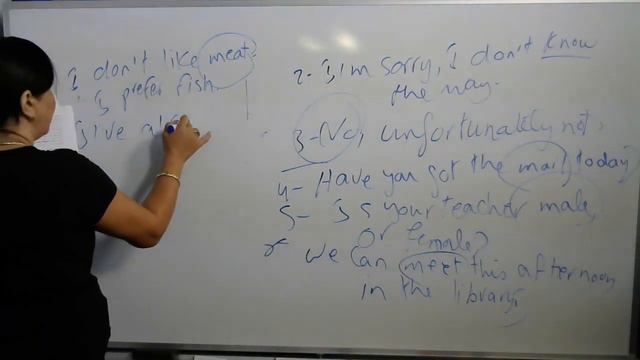 I don't like meat.
I prefer fish.
I've al
2- I'm sorry, I don't know
the way.
3- No, unfortunately not.
4- Have you got the mail today
5- Is your teacher male
or female?
We can meet this afternoon
in the library